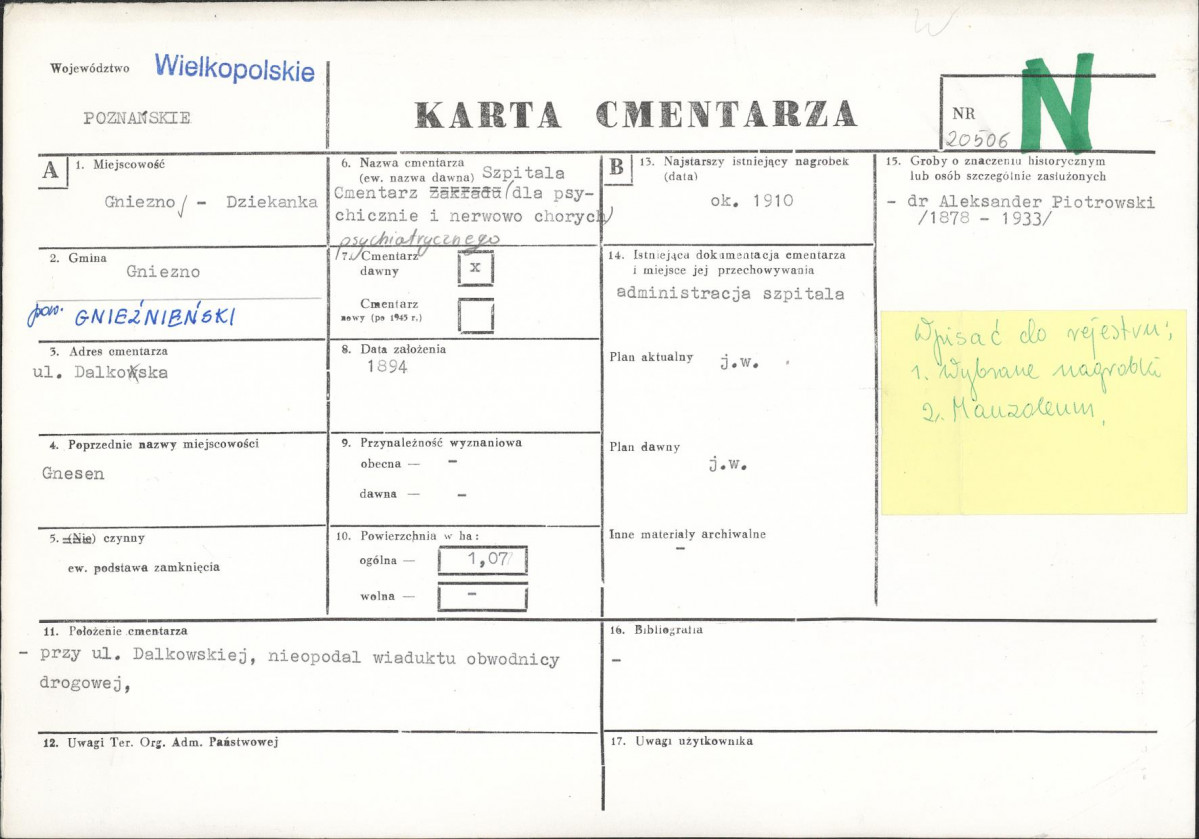 Województwo Wielkopolskie
POZNAŃSKIE
KARTA CMENTARZA
W
N
NR
20506
A
1. Miejscowość
Gniezno/ - Dziekanka
2. Gmina
Gniezno
pow. GNIEŹNIEŃSKI
3. Adres cmentarza
ul. Dalkowska
4. Poprzednie nazwy miejscowości
Gnesen
5. (Nie) czynny
ew. podstawa zamknięcia
6. Nazwa cmentarza
(ew. nazwa dawna) Szpitala
Cmentarz Zakładu (dla psy-
chicznie i nerwowo chorych)
psychiatrycznego
7. Cmentarz
dawny x
Cmentarz
nowy (po 1945 r.)
8. Data założenia
1894
9. Przynależność wyznaniowa
obecna — -
dawna — -
10. Powierzchnia w ha:
ogólna — 1,07
wolna — -
B
13. Najstarszy istniejący nagrobek
(data)
ok. 1910
14. Istniejąca dokumentacja cmentarza
i miejsce jej przechowywania
administracja szpitala
Plan aktualny j.w.
Plan dawny
j.w.
Inne materiały archiwalne
-
15. Groby o znaczeniu historycznym
lub osób szczególnie zasłużonych
- dr Aleksander Piotrowski
/1878 - 1933/
Wpisać do rejestru;
1. Wybrane nagrobki
2. Mauzoleum,
11. Położenie cmentarza
- przy ul. Dalkowskiej, nieopodal wiaduktu obwodnicy
drogowej,
16. Bibliografia
-
12. Uwagi Ter. Org. Adm. Państwowej
17. Uwagi użytkownika